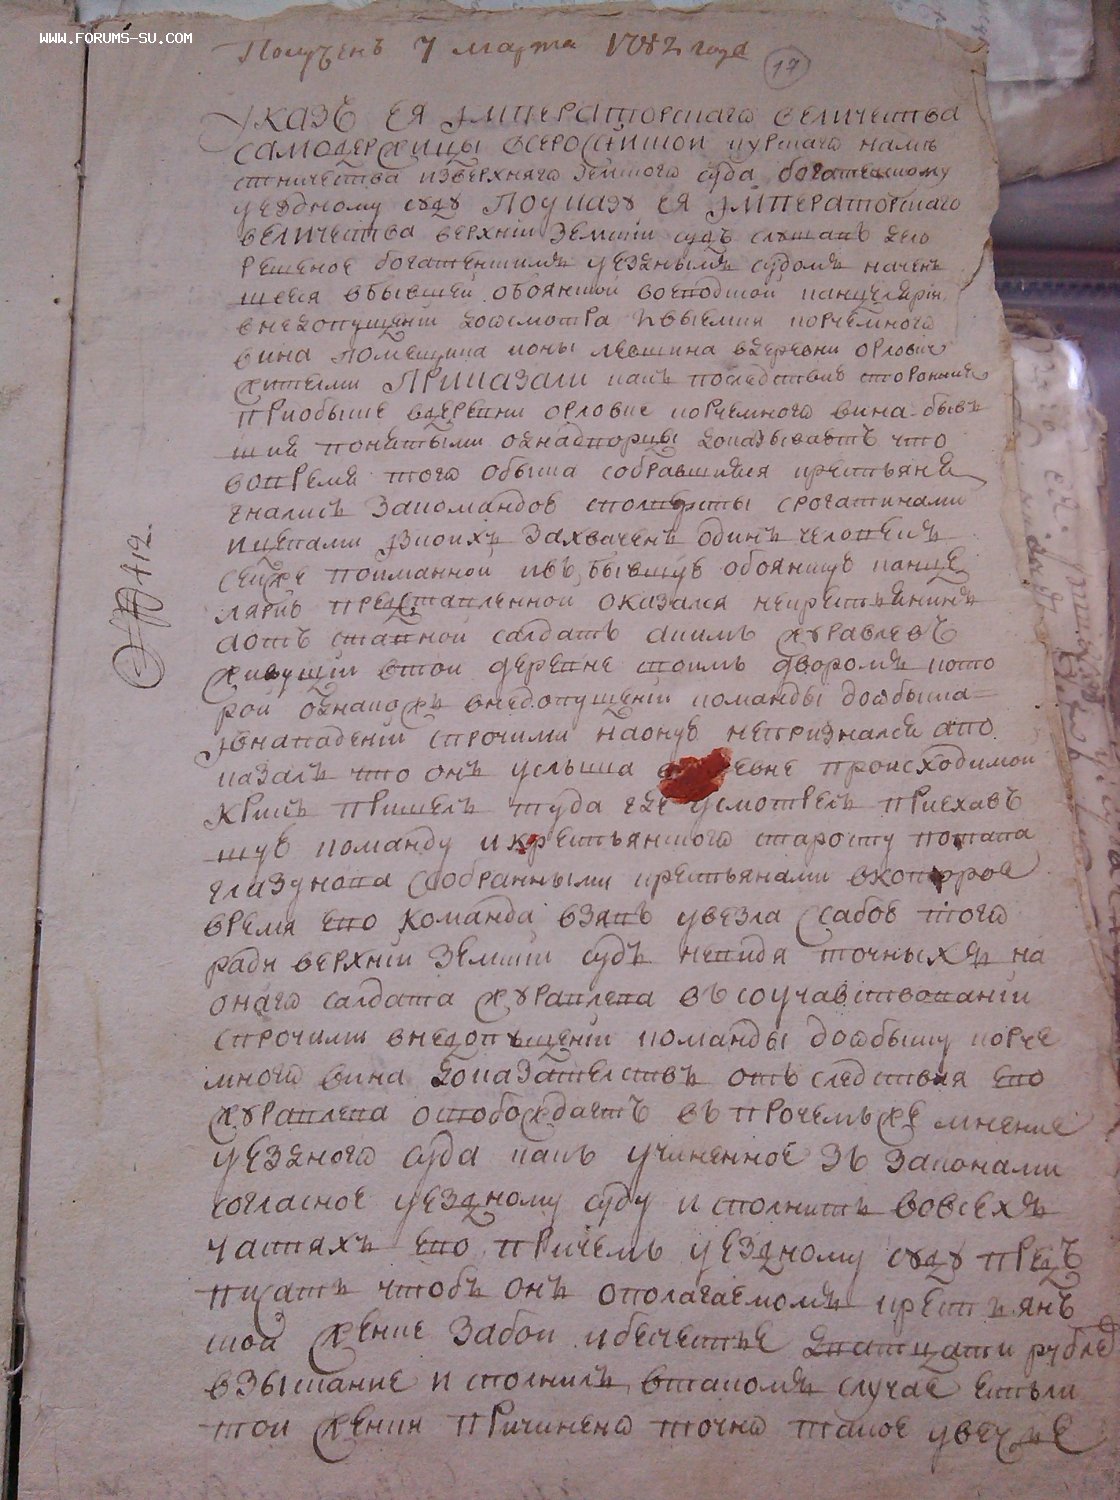 WWW.FORUMS-SU.COM
Полученъ 7 марта 1782 года
17
Указъ ея императорскаго величества
самодержицы всеросийской курскаго намѣ
стничества изверхняго земскаго суда богатенскому
уездному суду По указу ея императорскаго
величества верхній земскій судъ слушавъ дело
решеное богатенскимъ уезднымъ судомъ начен
шееся вбывшей обоянской воеводской канцеляріи
внедопущеніи досмотра ивыемки корчемного
вина помещика ионы левшина вдеревни орловке
жителми Приказали какъ последствию сторонние
приобыске вдеревни орловке корчемного вина быв
шия понятыми однадворцы доказываютъ что
вовремя того обыска собравшияся крестьяня
гнались закомандою сполисты срогатинами
ицепами изкоихъ захваченъ одинъ человекъ
сейже пойманной ивъ бывшую обоянскую канце
лярию представленной оказался некрестьянинъ
аотъ ставной салдатъ акимъ журавлевъ
живущій втой деревне своимъ дворомъ кото
рой однакожъ внедопущеніи команды дообыска
ивнападеніи спрочими наоную непризнался апо
казалъ что онъ услыша евне происходимой
крикъ пришелъ туда где усмотрелъ приехав
шую команду икрестьянского старосту потапа
глазунова ссобранными крестьянами вкоторое
время ево команда взявъ увезла ссабою того
ради верхній земскій судъ невидя точныхъ на
онаго салдата журавлева въ соучавствованіи
спрочими внедопущеніи команды дообыску корче
много вина доказателствъ отъ следствия ево
журавлева освобождаетъ въ прочемъ же мнение
уездного суда какъ учиненное зъ законами
согласное уездному суду исполнить вовсехъ
частяхъ ево причемъ уездному суду пред
писать чтобъ онъ ополагаемомъ крестьян
ской жение забои ибесчестье дватцати рубле
взыскание исполнилъ втакомъ случае естьли
той женки причинено точно такое увечье
№ 412.